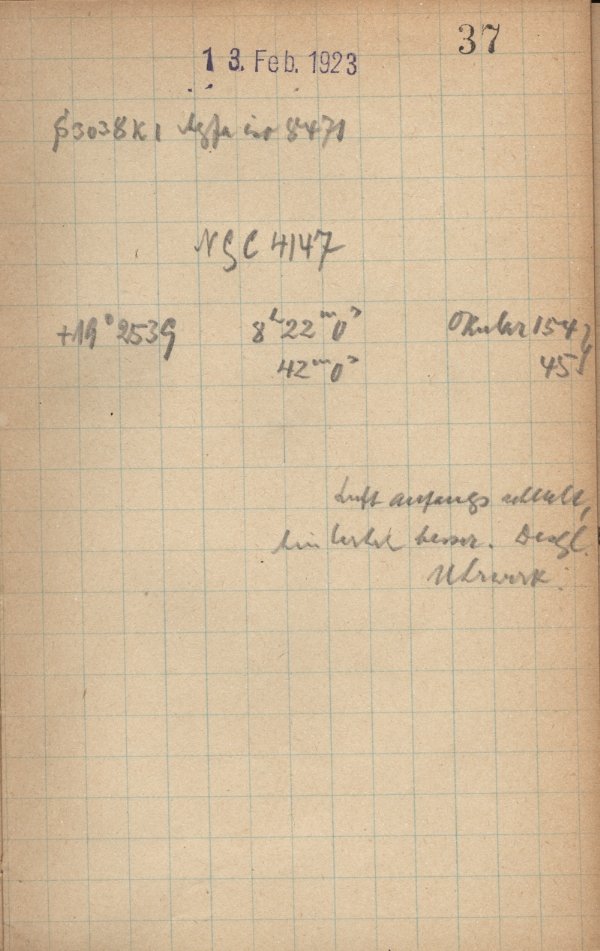 37
13. Feb. 1923
3038 K1 Agfa iso 8471
NGC 4147
+19° 2539 8h22m0s Okular 154,
42m0s 45
Luft anfangs schlecht,
hin besser. Desgl.
Uhrwerk.